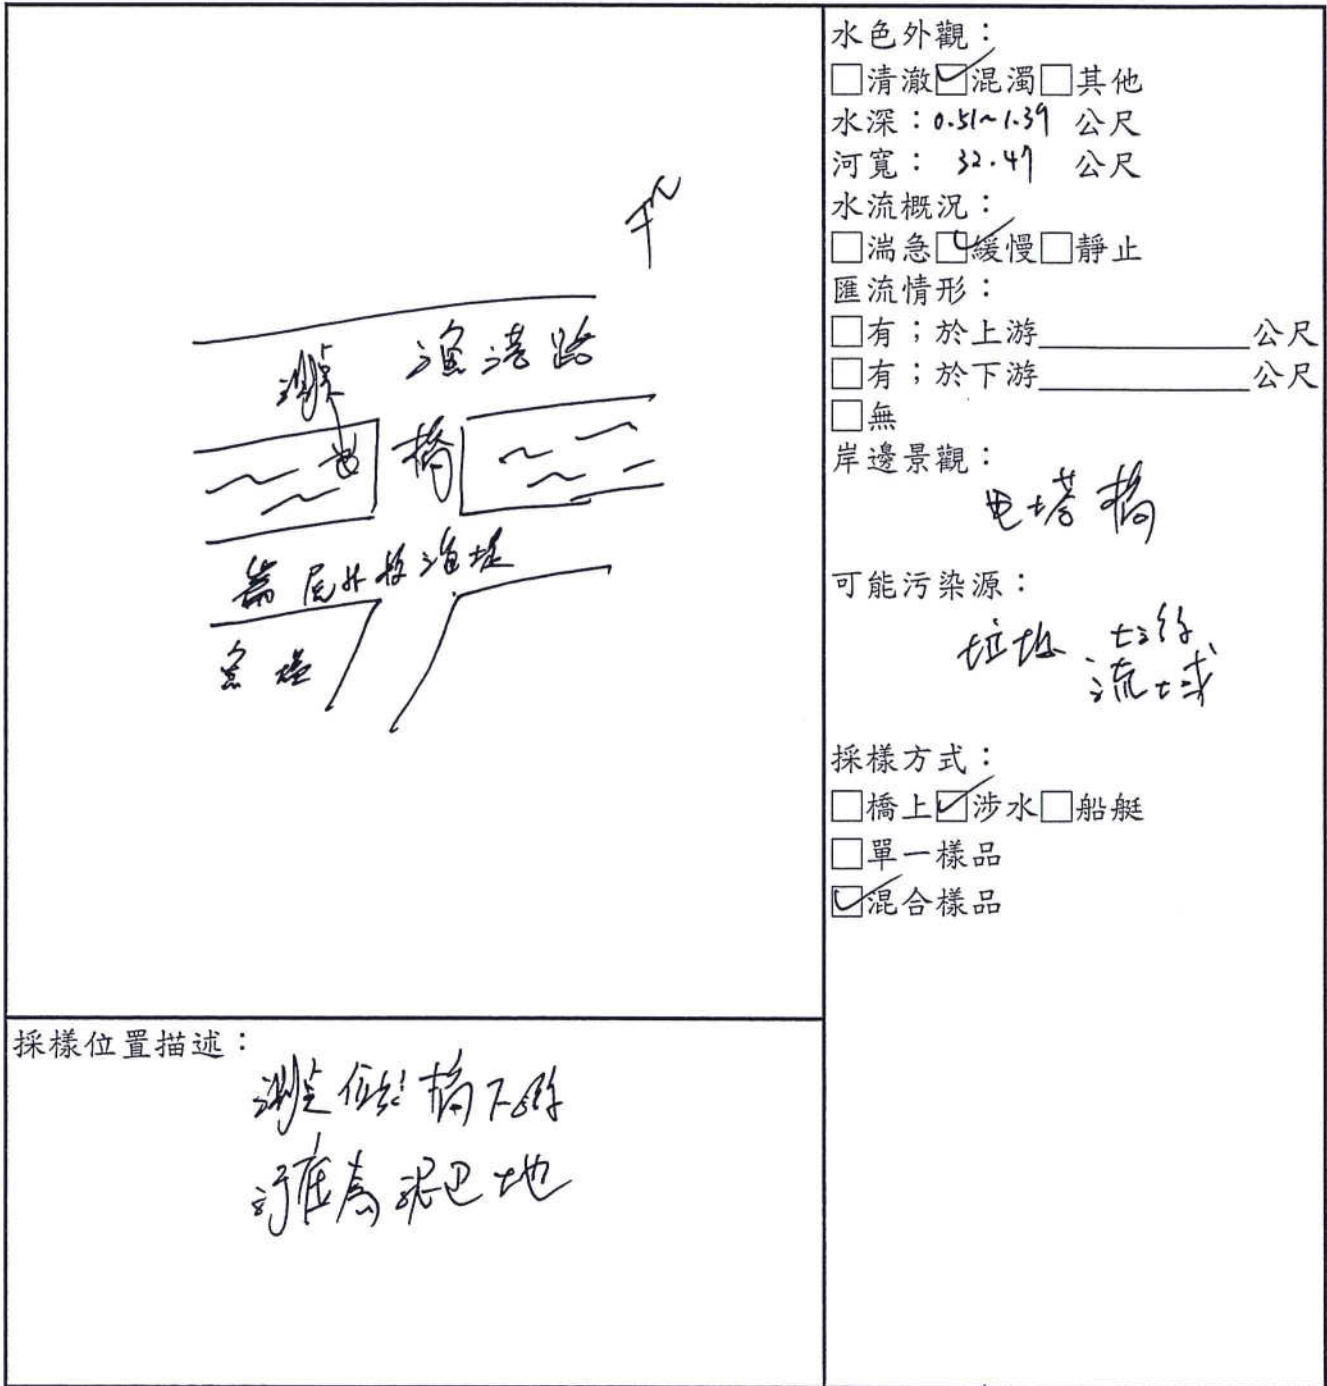 N
漁港路
測點
橋
崙尾外投漁堤
魚塭
採樣位置描述：
測點位於橋下游
河底為泥巴地
水色外觀：
□清澈☑混濁□其他
水深：0.51~1.39 公尺
河寬：32.47 公尺
水流概況：
□湍急☑緩慢□靜止
匯流情形：
□有；於上游____________公尺
□有；於下游____________公尺
□無
岸邊景觀：
电塔 橋
可能污染源：
垃圾
流域
採樣方式：
□橋上☑涉水□船艇
□單一樣品
☑混合樣品